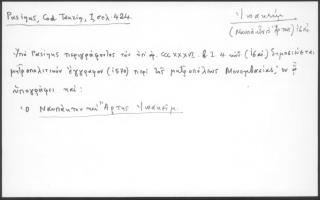 Pasinus, Cod. Taurin, I, σελ. 424.
Ἰωακείμ
(Ναυπάκτου Ἄρτης) ιϛ΄ αἰ.
Ὑπὸ Pasinus περιγράφοντος τὸν ὑπ' ἀρ. CCCXXXVI. β. I. 4 κώδ. (ιϛ΄ αἰ.) δημοσιεύεται
μητροπολιτικὸν ἔγγραφον (1570) περὶ τῆς μητροπόλεως Μονεμβασίας, ἐν ᾧ
ὑπογράφει καί:
Ὁ Ναυπάκτου καὶ Ἄρτης Ἰωακείμ.